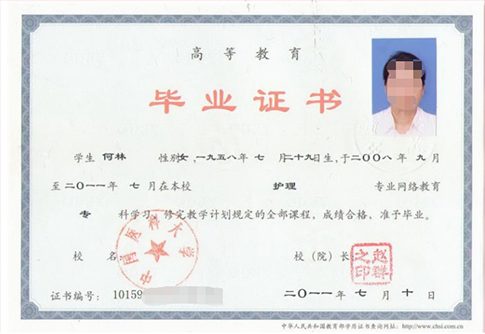 高等教育
毕业证书
学生 何林 性别女，一九五八年 七 月 二十九日生，于二〇〇八年 九 月
至二〇一一年 七 月在本校 护理 专业网络教育
专 科学习，修完教学计划规定的全部课程，成绩合格，准予毕业。
校 名 中国医科大学
校（院）长 赵群之印
证书编号：10159
二〇一一年 七 月 十 日
中华人民共和国教育部学历证书查询网址：http://www.chsi.com.cn